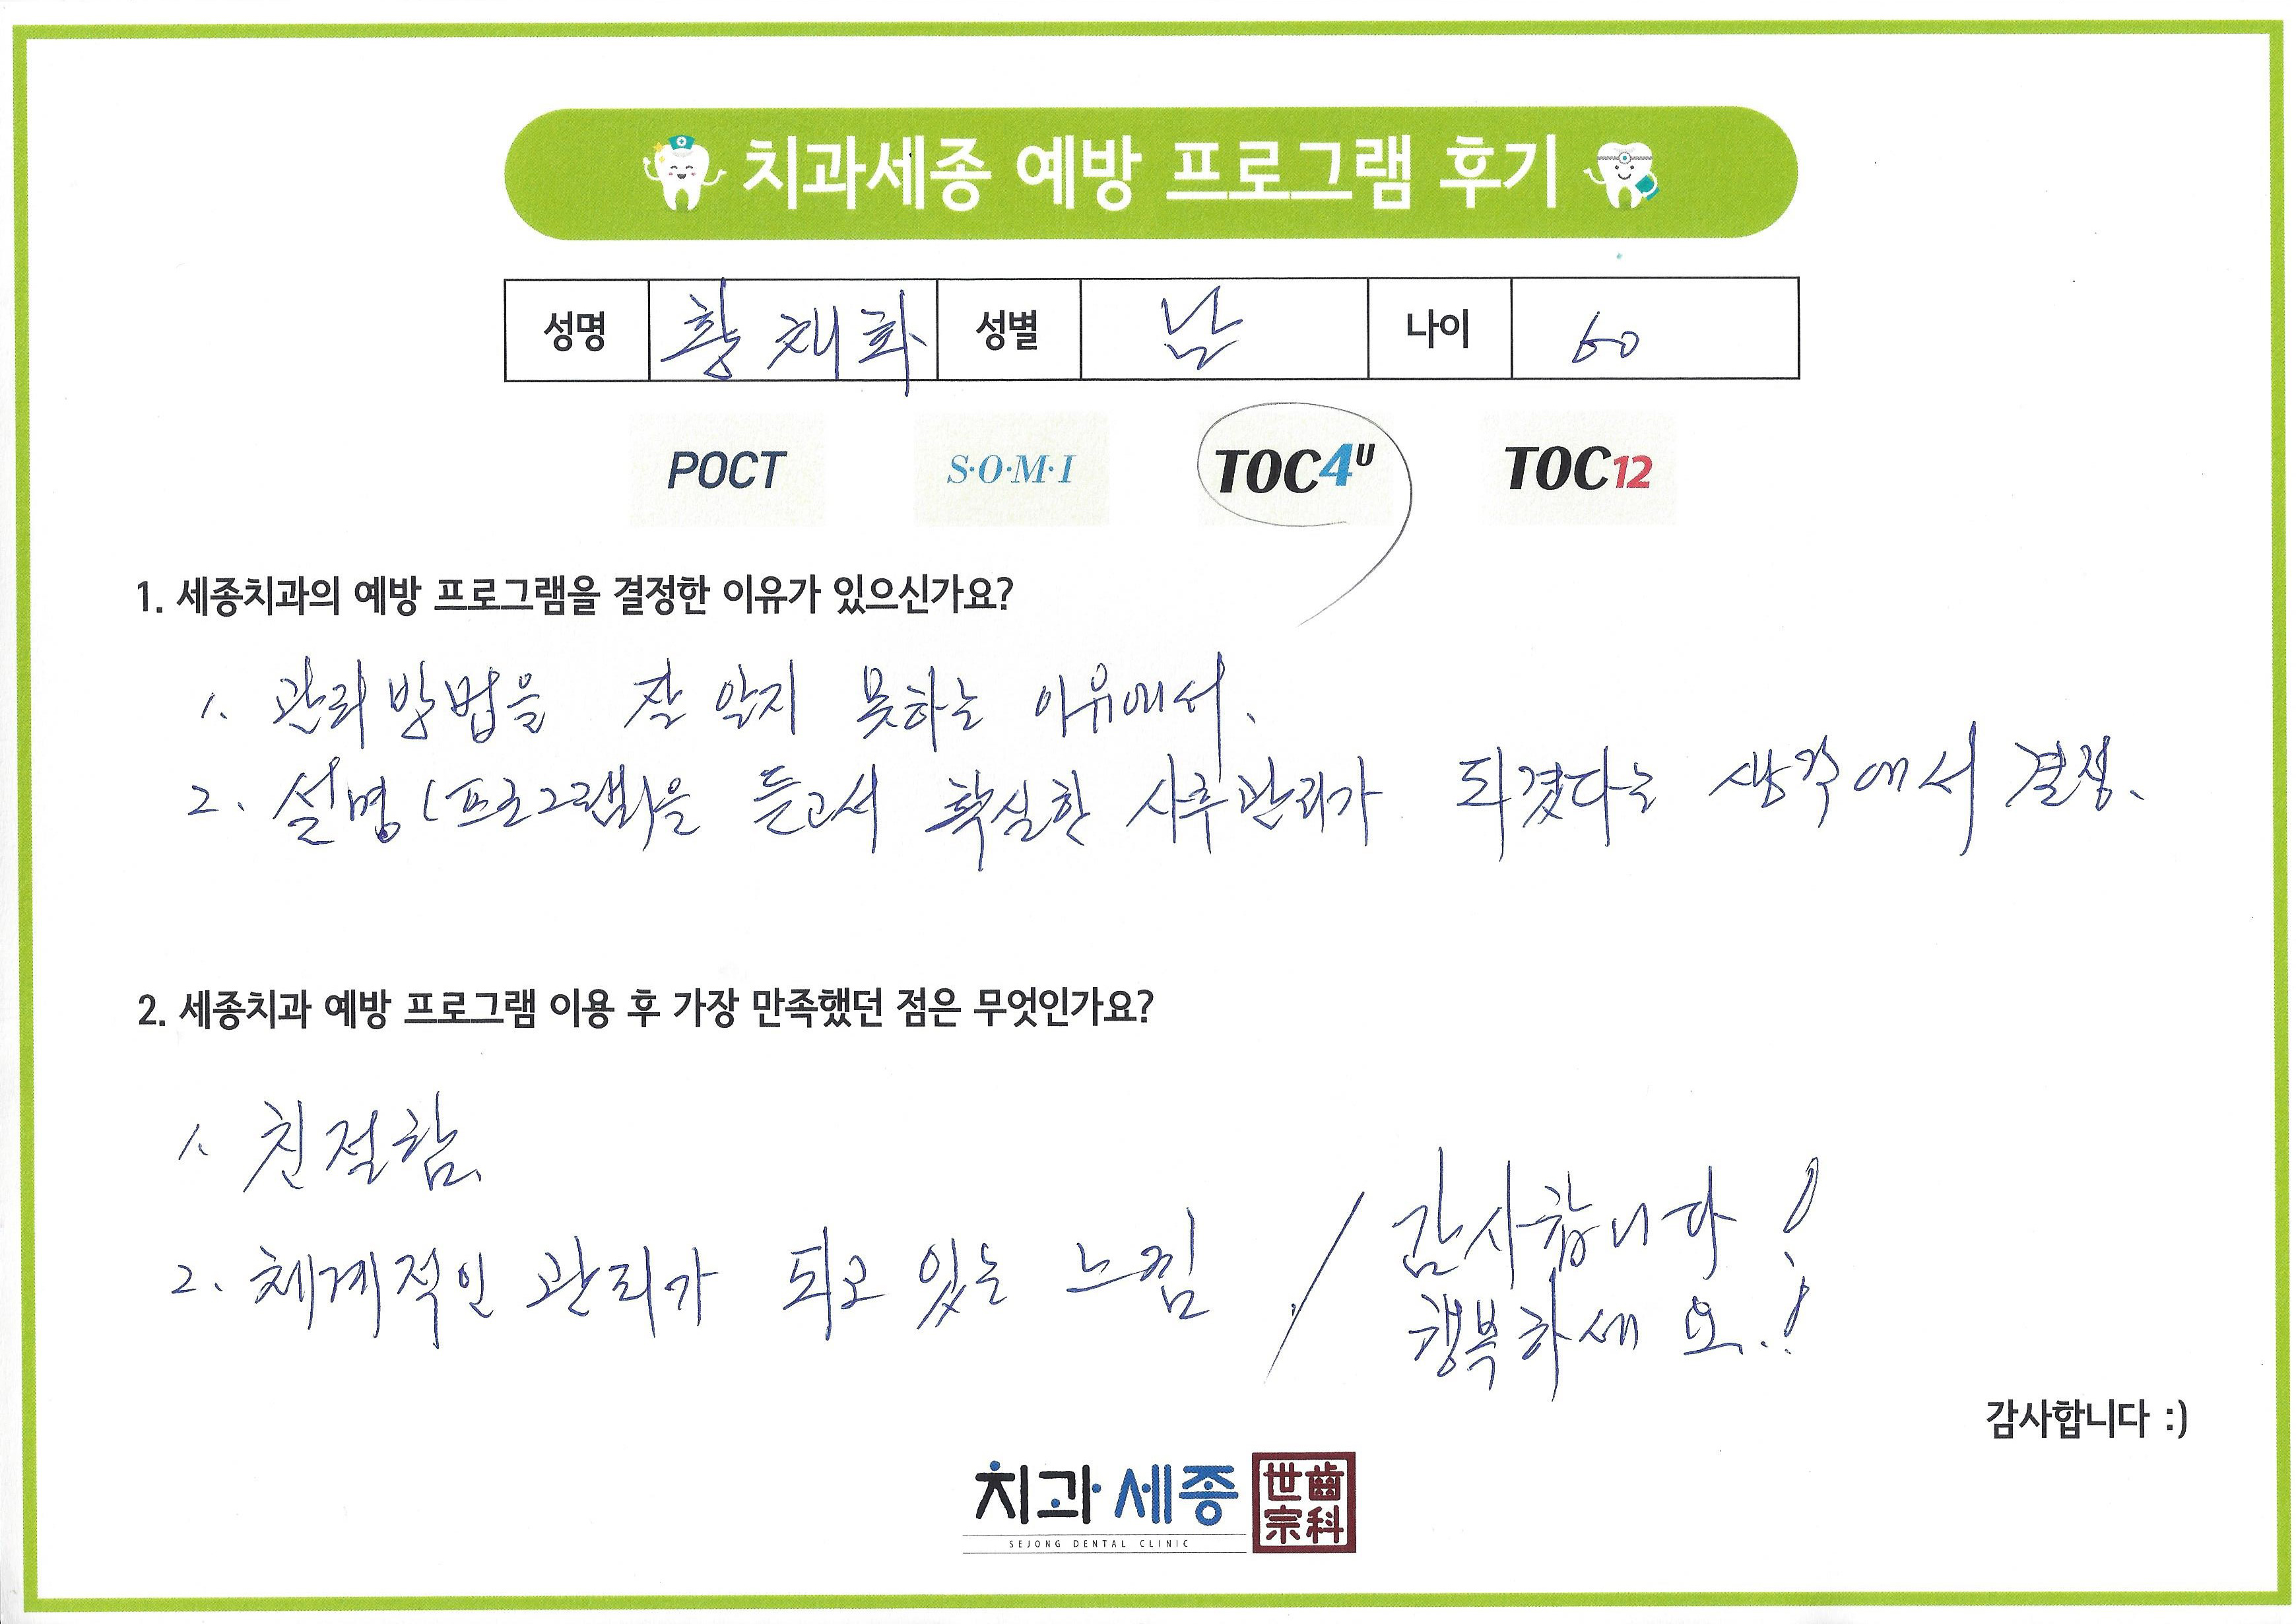 치과세종 예방 프로그램 후기
성명 황채화 성별 남 나이 60
POCT S·O·M·I TOC4U TOC12
1. 세종치과의 예방 프로그램을 결정한 이유가 있으신가요?
1. 관리방법을 잘 알지 못하는 이유에서.
2. 설명(프로그램)을 듣고서 확실한 사후관리가 되겠다는 생각에서 결정.
2. 세종치과 예방 프로그램 이용 후 가장 만족했던 점은 무엇인가요?
1. 친절함.
2. 체계적인 관리가 되고 있는 느낌
감사합니다!
행복하세요.!
감사합니다 :)
치과세종 世齒
宗科
SEJONG DENTAL CLINIC